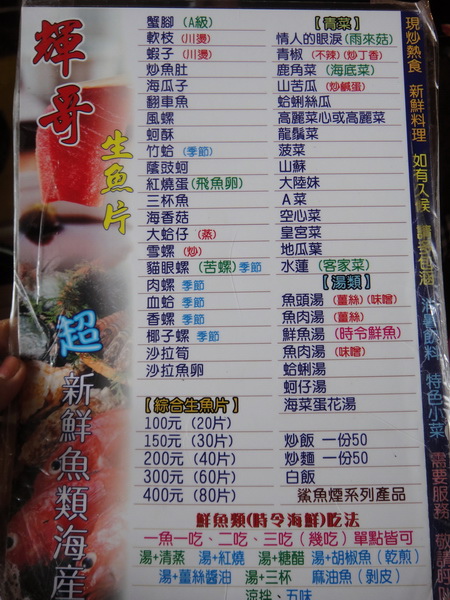 輝哥
生魚片
超
新鮮魚類海產
蟹腳(A級)
軟枝(川燙)
蝦子(川燙)
炒魚肚
海瓜子
翻車魚
風螺
蚵酥
竹蛤 季節
蔭豉蚵
紅燒蛋(飛魚卵)
三杯魚
海香菇
大蛤仔(蒸)
雪螺(炒)
貓眼螺(苦螺)季節
肉螺 季節
血蛤 季節
香螺 季節
椰子螺 季節
沙拉筍
沙拉魚卵
【綜合生魚片】
100元(20片)
150元(30片)
200元(40片)
300元(60片)
400元(80片)
【青菜】
情人的眼淚(雨來菇)
青椒(不辣)(炒丁香)
鹿角菜(海底菜)
山苦瓜(炒鹹蛋)
蛤蜊絲瓜
高麗菜心或高麗菜
龍鬚菜
菠菜
山蘇
大陸妹
A菜
空心菜
皇宮菜
地瓜葉
水蓮(客家菜)
【湯類】
魚頭湯(薑絲)(味噌)
魚肉湯(薑絲)
鮮魚湯(時令鮮魚)
魚肉湯(味噌)
蛤蜊湯
蚵仔湯
海菜蛋花湯
炒飯 一份50
炒麵 一份50
白飯
鯊魚煙系列產品
鮮魚類(時令海鮮)吃法
一魚一吃、二吃、三吃(幾吃)單點皆可
湯+清蒸 湯+紅燒 湯+糖醋 湯+胡椒魚(乾煎)
湯+薑絲醬油 湯+三杯 麻油魚(剝皮)
涼拌、五味
現炒熱食 新鮮料理 如有久候 請多包涵
飲料 特色小菜 需要服務 敬請